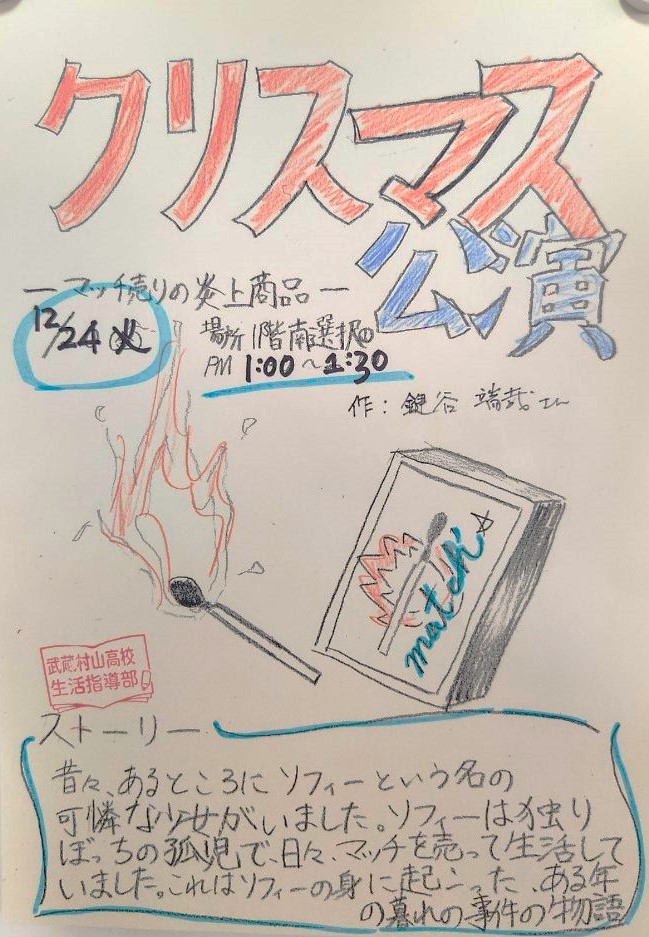 クリスマス
公演
ーマッチ売りの炎上商品ー
12/24 火
場所 1階南選択①
PM 1:00〜1:30
作：鍵谷 端哉さん
match
武蔵村山高校
生活指導部
ストーリー
昔々、あるところにソフィーという名の
可憐な少女がいました。ソフィーは独り
ぼっちの孤児で、日々、マッチを売って生活して
いました。これはソフィーの身に起こった、ある年
の暮れの事件の物語